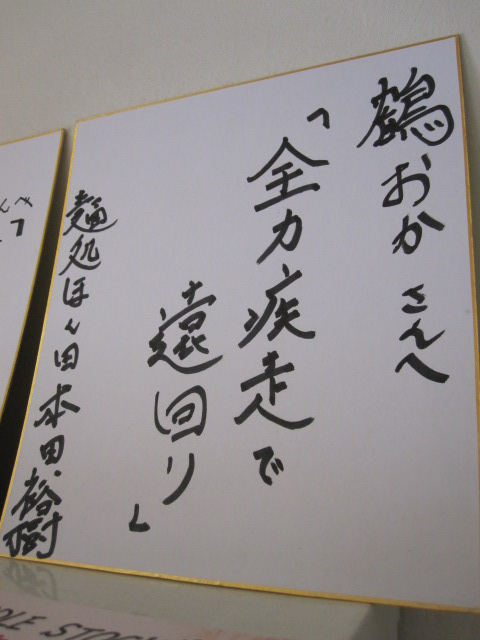 鶴おかさんへ
「全力疾走で
遠回り」
麺処ほん田 本田裕樹